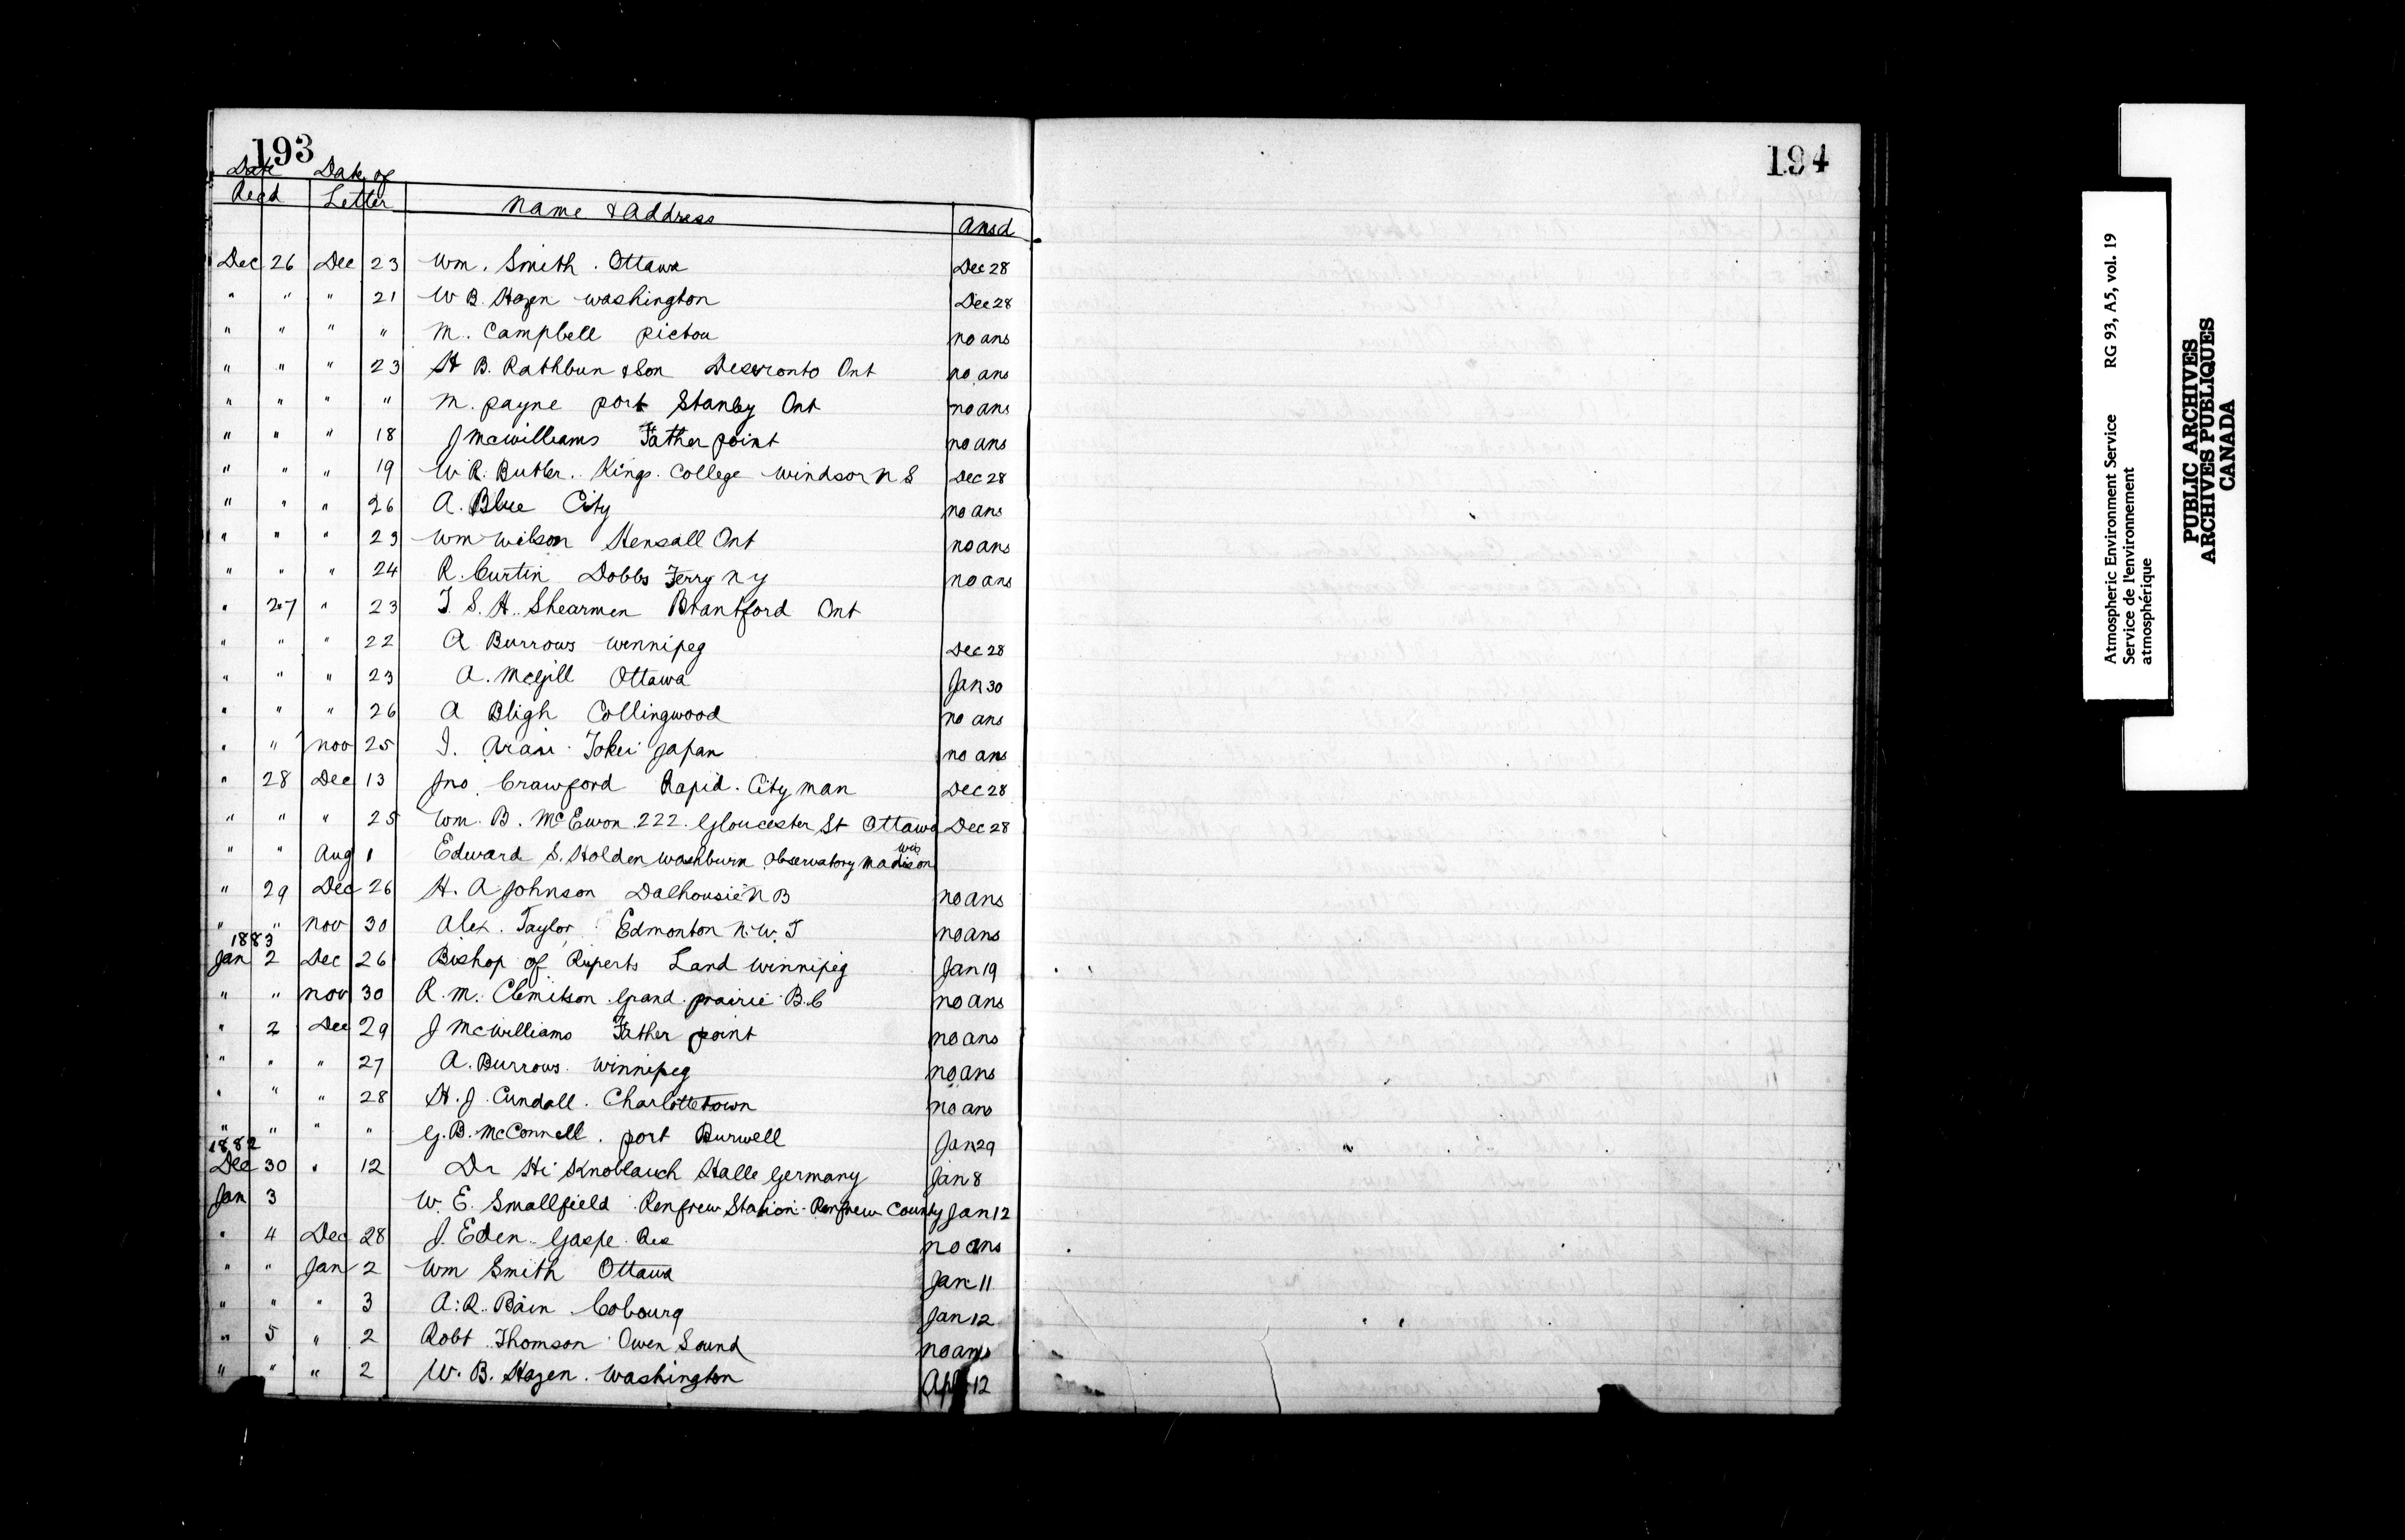 193
Date Date of
Recd Letter Name & Address Ansd
Dec 26 Dec 23 Wm. Smith. Ottawa Dec 28
" " " 21 W B. Hazen Washington Dec 28
" " " " M. Campbell Pictou no ans
" " " 23 H B. Rathbun & Son Deseronto Ont no ans
" " " " M. Payne Port Stanley Ont no ans
" " " 18 J McWilliams Father Point no ans
" " " 19 W R. Butler. Kings College Windsor N S Dec 28
" " " 26 A. Blue City no ans
" " " 23 Wm Wilson Hensall Ont no ans
" " " 24 R. Curtin Dobbs Ferry N Y no ans
" 27 " 23 T. S. H. Shearmen Brantford Ont
" " " 22 A Burrows Winnipeg Dec 28
" " " 23 A. McGill Ottawa Jan 30
" " " 26 A Bligh Collingwood no ans
" " Nov 25 I. Arai Tokei Japan no ans
" 28 Dec 13 Jno. Crawford Rapid City Man Dec 28
" " " 25 Wm. B. McEwon 222 Gloucester St Ottawa Dec 28
" " Aug 1 Edward S. Holden Washburn Observatory Madison Wis
" 29 Dec 26 H. A Johnson Dalhousie N B no ans
" " Nov 30 Alex. Taylor Edmonton N. W. T no ans
1883
Jan 2 Dec 26 Bishop of Ruperts Land Winnipeg Jan 19
" " Nov 30 R. M. Clemitson Grand prairie B. C no ans
" 2 Dec 29 J McWilliams Father point no ans
" " " 27 A. Burrows. Winnipeg no ans
" " " 28 H. J. Cundall. Charlottetown no ans
" " " " G. B. McConnell. port Burwell Jan 29
1882
Dec 30 " 12 Dr H. Knoblauch Halle Germany Jan 8
Jan 3 W. E. Smallfield Renfrew Station Renfrew County Jan 12
" 4 Dec 28 J. Eden Gaspe no ans
" " Jan 2 Wm Smith Ottawa Jan 11
" " " 3 A. R. Bain Cobourg Jan 12
" 5 " 2 Robt Thomson Owen Sound no ans
" " " 2 W. B. Hazen. Washington Apl 12
194
Atmospheric Environment Service RG 93, A5, vol. 19
Service de l'environnement
atmosphérique
PUBLIC ARCHIVES
ARCHIVES PUBLIQUES
CANADA